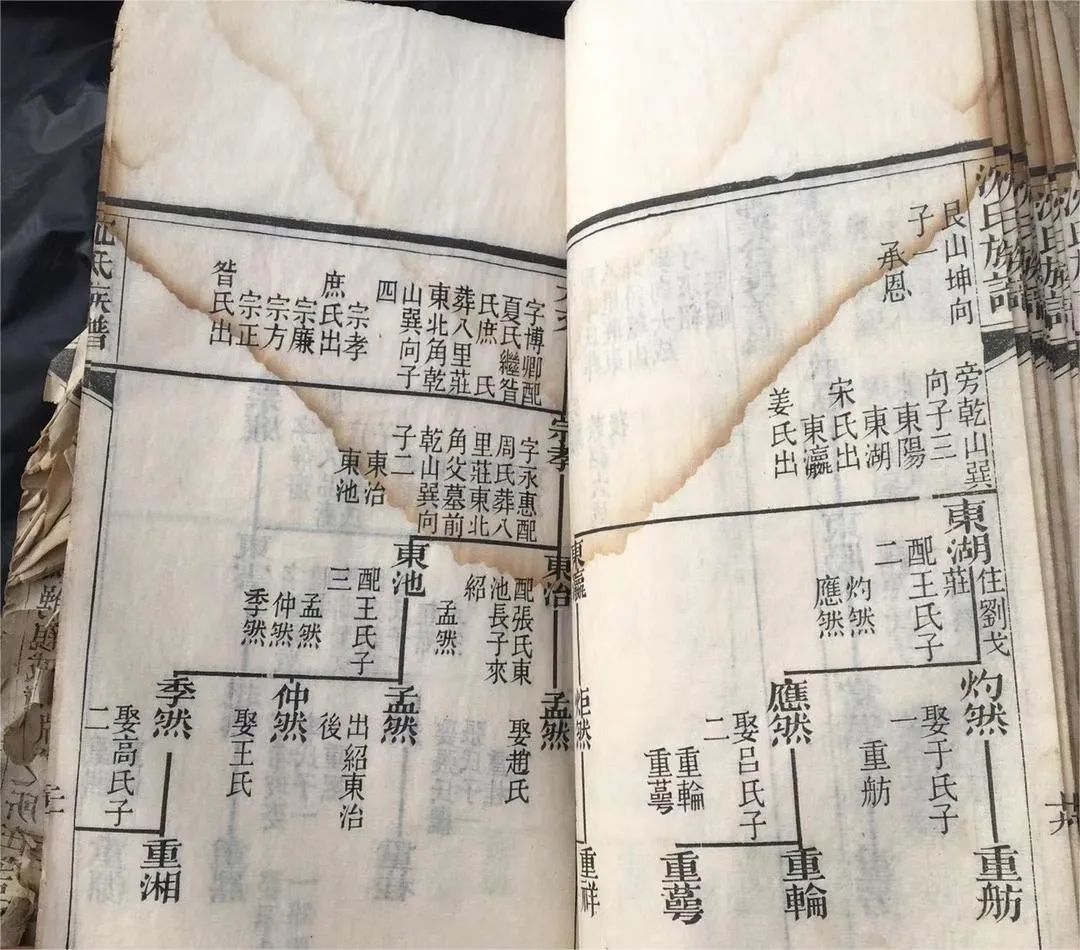 氏族譜
艮山坤向
子
承恩
旁乾山巽
向子三
東陽
東湖
宋氏出
東瀛
姜氏出
東湖
住劉戈
莊
配王氏子
二
灼然
應然
灼然
娶于氏子
一
重舫
應然
娶呂氏子
二
重輪
重萼
重舫
重輪
重萼
東瀛
炬然
重祥
字博卿配
夏氏繼昝
氏庶 氏
葬八里莊
東北角乾
山巽向子
四
宗孝
庶氏出
宗廉
宗方
宗正
昝氏出
宗孝
字永惠配
周氏葬八
里莊東北
角父墓前
乾山巽向
子二
東治
東池
東治
配張氏東
池長子來
紹
孟然
東池
配王氏子
三
孟然
仲然
季然
孟然
娶趙氏
孟然
出紹東治
後
仲然
娶王氏
季然
娶高氏子
二
重湘
氏族譜